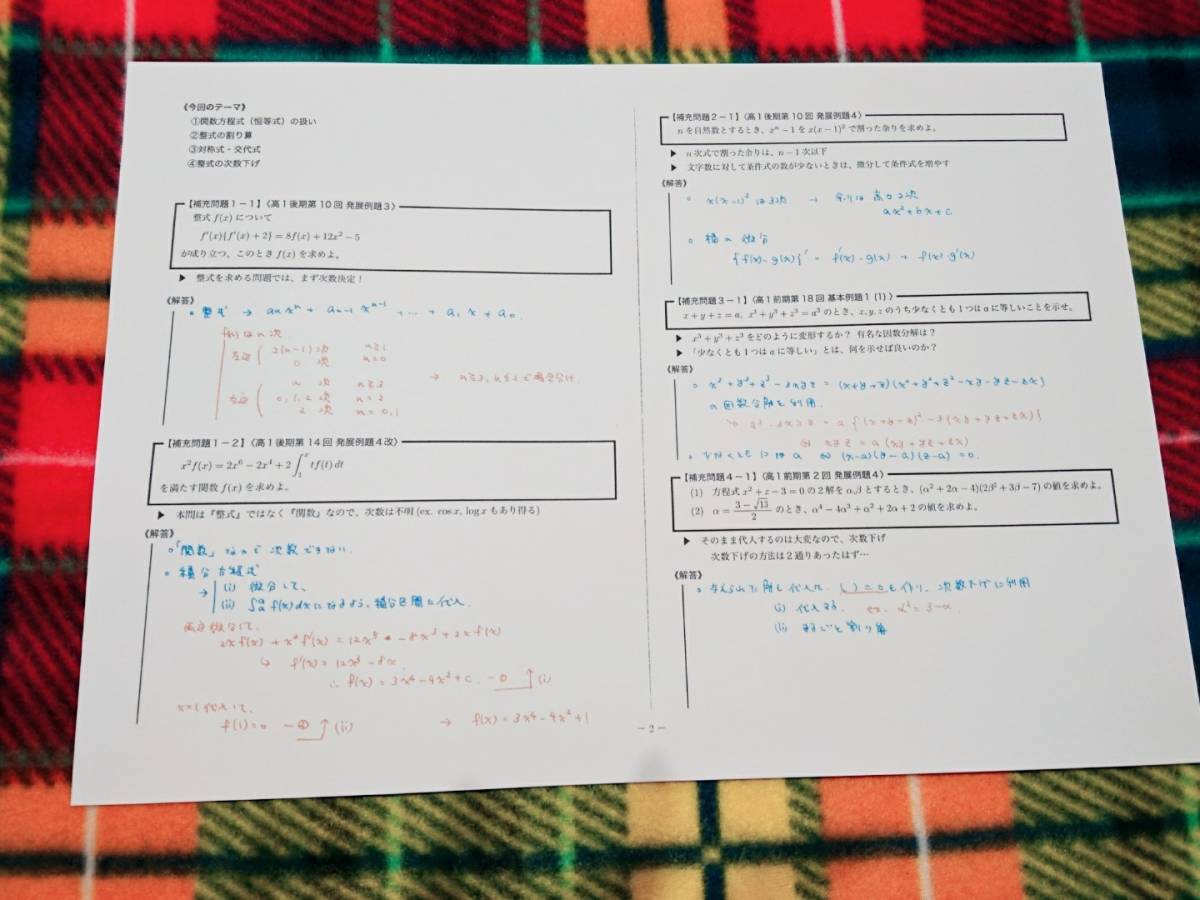 《今回のテーマ》
①関数方程式(恒等式)の扱い
②整式の割り算
③対称式・交代式
④整式の次数下げ
【補充問題1-1】〈高1後期第10回 発展例題3〉
整式 f(x) について
f'(x){f'(x)+2} = 8f(x)+12x²-5
が成り立つ。このとき f(x) を求めよ。
▶ 整式を求める問題では、まず次数決定!
《解答》
整式 → aₙxⁿ + aₙ₋₁xⁿ⁻¹ + … + a₁x + a₀
f(x)はn次
左辺 2(n-1)次 n≧1
0 次 n=0
n 次 n≧3
0,1,2 次 n=2
2 次 n=0,1
→ n≧3, n≦2で場合分け
【補充問題1-2】〈高1後期第14回 発展例題4改〉
x²f(x) = 2x⁶ - 2x⁴ + 2∫₁ˣ tf(t) dt
を満たす関数 f(x) を求めよ。
▶ 本問は『整式』ではなく『関数』なので、次数は不明(ex. cos x, log x もあり得る)
《解答》
「関数」なので 次数できない
積分方程式
→ (i) 微分して、
(ii) ∫ₐᵃ f(x)dxになるよう、積分区間に代入
両辺微分して、
2xf(x) + x²f'(x) = 12x⁵ - 8x³ + 2xf(x)
↳ f'(x) = 12x³ - 8x
∴ f(x) = 3x⁴ - 4x² + c -① (i)
x=1代入して、
f(1)=0 -② (ii) → f(x) = 3x⁴ - 4x² + 1
【補充問題2-1】〈高1後期第10回 発展例題4〉
n を自然数とするとき、xⁿ-1 を x(x-1)² で割った余りを求めよ。
▶ n次式で割った余りは、n-1次以下
▶ 文字数に対して条件式の数が少ないときは、微分して条件式を増やす
《解答》
x(x-1)² は3次 → 余りは高々2次
ax²+bx+c
積の微分
{f(x)・g(x)}' = f'(x)・g(x) + f(x)・g'(x)
【補充問題3-1】〈高1前期第18回 基本例題1(1)〉
x+y+z = a, x³+y³+z³ = a³ のとき、x, y, z のうち少なくとも1つは a に等しいことを示せ。
▶ x³+y³+z³ をどのように変形するか? 有名な因数分解は?
▶ 「少なくとも1つは a に等しい」とは、何を示せば良いのか?
《解答》
x³+y³+z³-3xyz = (x+y+z)(x²+y²+z²-xy-yz-zx)
の因数分解を利用.
a³-3xyz = a{(x+y+z)²-3(xy+yz+zx)}
⇔ xyz = a(xy+yz+zx)
少なくとも1つはa ⇔ (x-a)(y-a)(z-a)=0.
【補充問題4-1】〈高1前期第2回 発展例題4〉
(1) 方程式 x²+x-3=0 の2解を α, β とするとき、(α²+2α-4)(2β²+3β-7) の値を求めよ。
(2) α = (3-√13)/2 のとき、α⁴-4α³+α²+2α+2 の値を求めよ。
▶ そのまま代入するのは大変なので、次数下げ
次数下げの方法は2通りあったはず…
《解答》
与えられた解を代入した ( )=0 を作り、次数下げに利用
(i) 代入する. ex. α²=3-α
(ii) まるごと割り算
-2-